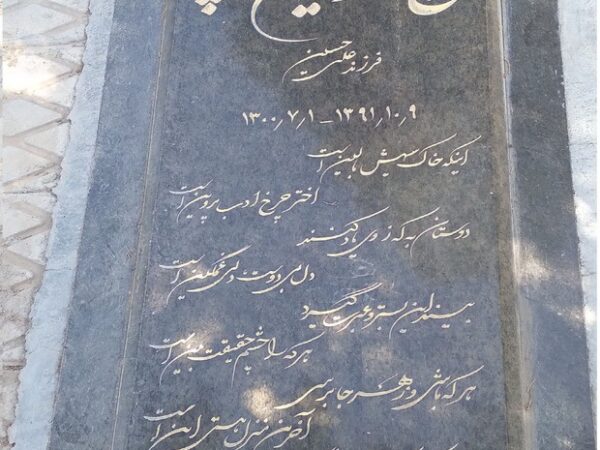 فرزند علی حسین
۱۳۰۰/۷/۱ - ۱۳۹۱/۱۰/۹
اینکه خاک سیهش بالین است
اختر چرخ ادب پروین است
دوستان به که ز وی یاد کنند
دل بی دوست دلی غمگین است
بیند این بستر و عبرت گیرد
هر که را چشم حقیقت بین است
هر که باشی و ز هر جا برسی
آخرین منزل هستی این است